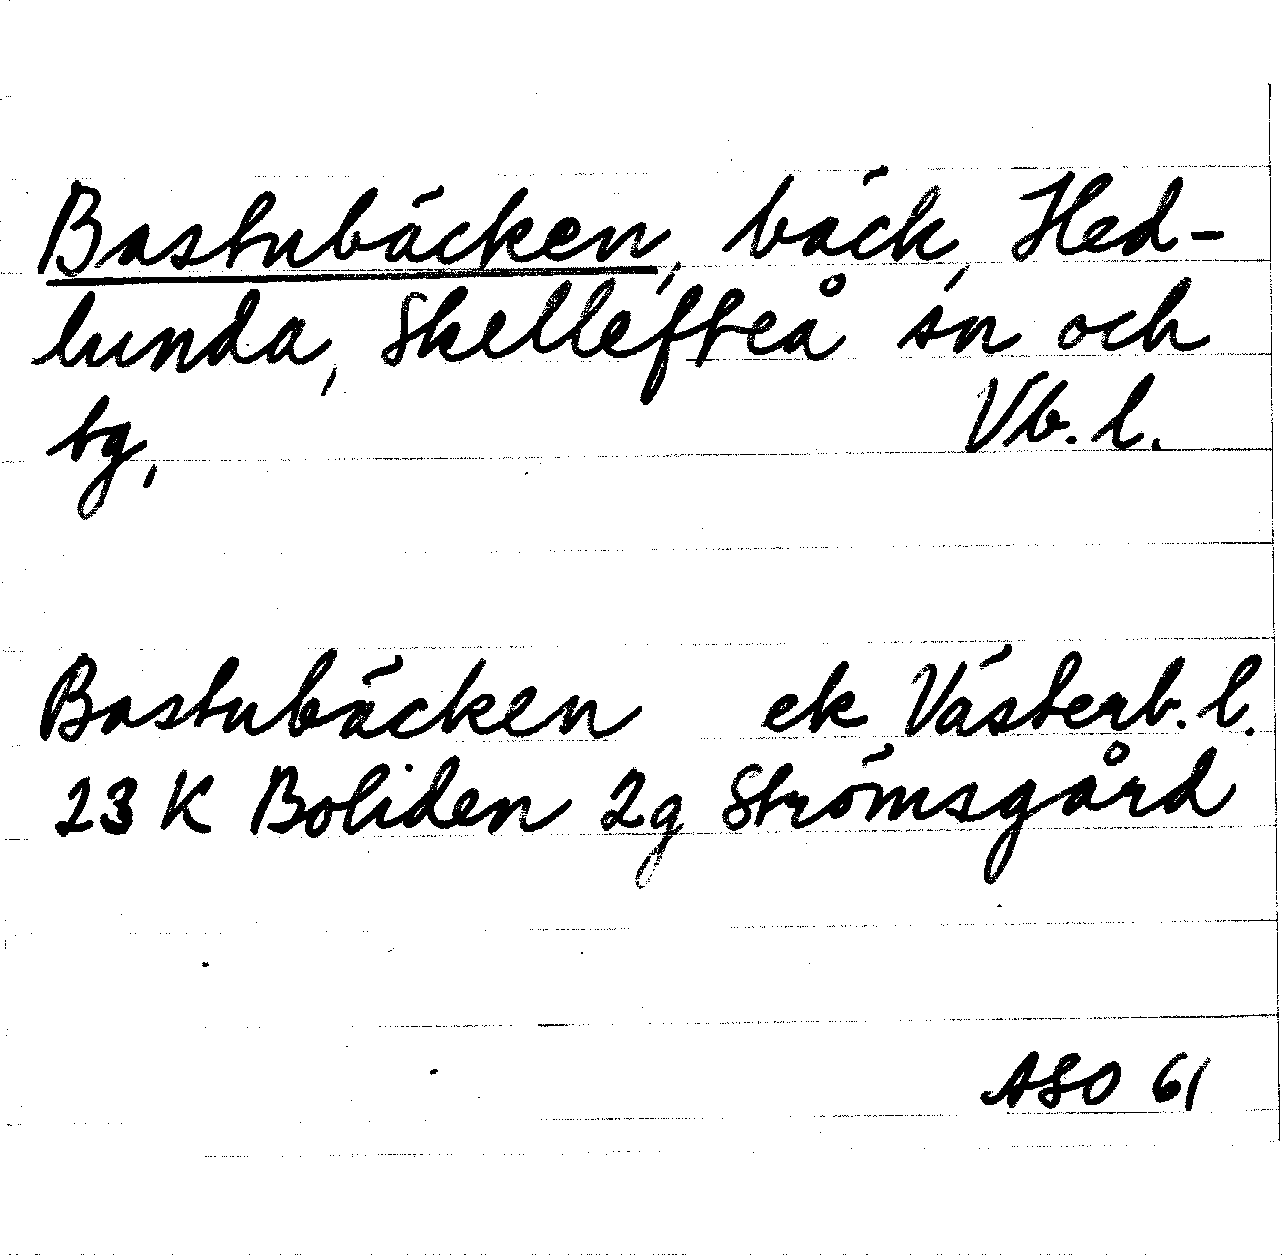 Bastubäcken, bäck, Hed-
lunda, Skellefteå sn och
tg, Vb. l.
Bastubäcken ek Västerb. l.
23 K Boliden 2g Strömsgård
ASO 61